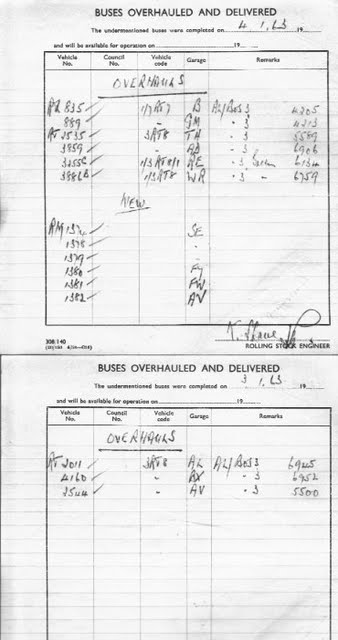 BUSES OVERHAULED AND DELIVERED
The undermentioned buses were completed on 4.1.63 19
and will be available for operation on 19
Vehicle No. Council No. Vehicle code Garage Remarks
OVERHAULS
835 B AL/BOS 3 4205
889 - GM " 3 4213
RT 2535 3RT8 TH " 3
3859 - " 3 6906
" 3
WR " 3 " 6759
NEW
RM 1374 SE
1378 -
1379 -
1380 FY
1381 FW
1382 AV
ROLLING STOCK ENGINEER
308/140
BUSES OVERHAULED AND DELIVERED
The undermentioned buses were completed on 3.1.63 19
and will be available for operation on 19
Vehicle No. Council No. Vehicle code Garage Remarks
OVERHAULS
RT 2011 3RT8 AL AL/BOS 3 6945
4160 - AX " 3 6952
2544 - AV " 3 5500